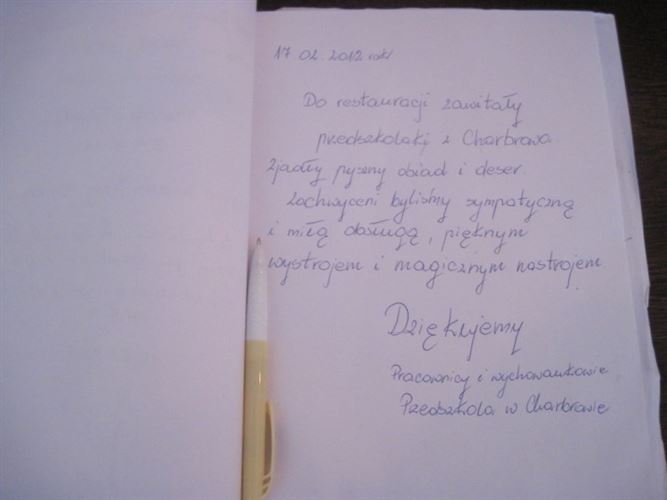 17 02. 2012 rok
Do restauracji zawitały
przedszkolaki z Charbrowa.
Zjadły pyszny obiad i deser.
Zachwyceni byliśmy sympatyczną
i miłą obsługą, pięknym
wystrojem i magicznym nastrojem.
Dziękujemy
Pracownicy i wychowankowie
Przedszkola w Charbrowie